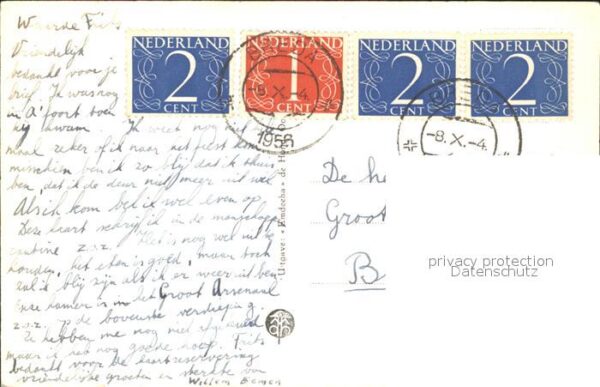 Waarde Frits
Vriendelijk
bedankt voor je
brief. Ik was nog
in A'foort toen
hij kwam. Ik weet nog niet
maal zeker of ik naar het feest kom
misschien ben ik zo blij dat ik thuis
ben, dat ik de deur niet meer uit wil
Als ik kom bel ik wel even op.
Deze kaart schrijf ik in de
cantine z.o.z. Het is nog wel uit te
houden, het eten is goed, maar toch
zal ik blij zijn als ik er weer uit ben
Onze kamer is in het Groot Arsenaal
z.o.z. op de bovenste verdieping.
Ze hebben me nog niet
maar ik heb nog goede hoop. Frits
bedankt voor de kaartreservering
vriendelijke groeten en sterkte van
Willem
NEDERLAND
2
CENT
NEDERLAND
1
CENT
NEDERLAND
2
CENT
NEDERLAND
2
CENT
-8.X.-4.
1956
-8.X.-4.
Uitgave: «Emdeeha» de
De h
Groot
B
privacy protection
Datenschutz